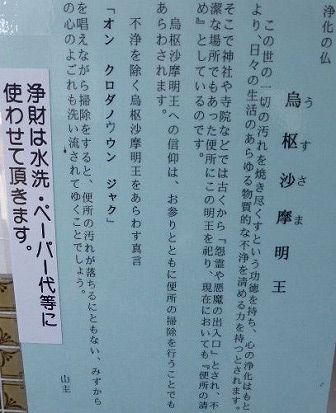 浄化の仏
烏枢沙摩明王
うすさま
この世の一切の汚れを焼き尽くすという功徳を持ち、心の浄化はもと
より、日々の生活のあらゆる物質的な不浄を清める力を持つとされます。
そこで神社や寺院などでは古くから「怨霊や悪魔の出入口」とされ、不
潔な場所でもあった便所にこの明王を祀り、現在においても『便所の清
め』としているのです。
烏枢沙摩明王への信仰は、お参りとともに便所の掃除を行うことでも
あらわされます。
不浄を除く烏枢沙摩明王をあらわす真言
「オン クロダノウウン ジャク」
を唱えながら掃除をすると、便所の汚れが落ちるにともない、みずから
の心のよごれも洗い流されてゆくことでしょう。
山主
浄財は水洗・ペーパー代等に
使わせて頂きます。